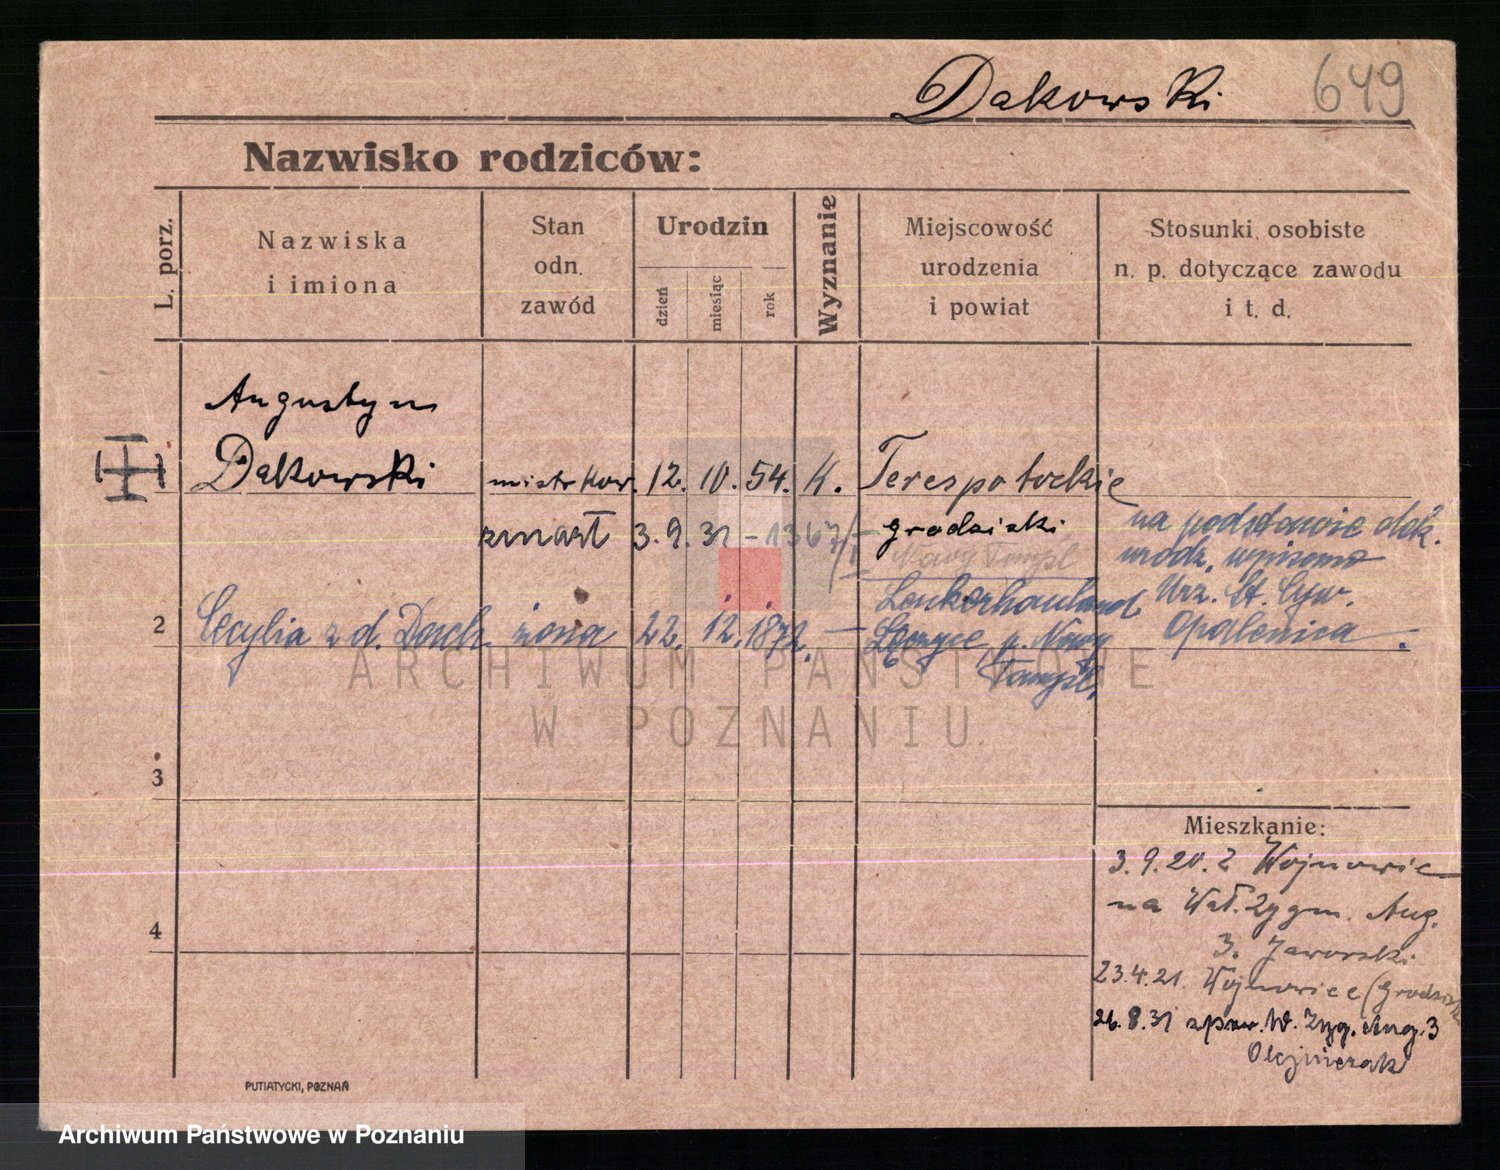 Dakowski 649
Nazwisko rodziców:
L. porz.
Nazwiska
i imiona
Stan
odn.
zawód
Urodzin
dzień
miesiąc
rok
Wyznanie
Miejscowość
urodzenia
i powiat
Stosunki osobiste
n. p. dotyczące zawodu
i t. d.
Augustyn
Dakowski mistr kow. 12. 10. 54. K. Terespotockie
zmarł 3. 9. 31 - 1367/ grodziski
Nowy Tomyśl
na podstawie dok.
urodz. wpisano
Urz. St. Cyw.
Opalenica.
2 Cecylia z d. Dosch żona 22. 12. 1872. —
p. Nowy
Tomyśl.
3
4
Mieszkanie:
3.9.20. z Wojnowic
na Wał. Zygm. Aug.
3. Jaworski
23.4.21. Wojnowice (Grodzisk
26.8.31 zpow. W. Zyg. Aug. 3
Olejniczak
PUTIATYCKI, POZNAŃ
ARCHIWUM PAŃSTWOWE
W POZNANIU
Archiwum Państwowe w Poznaniu